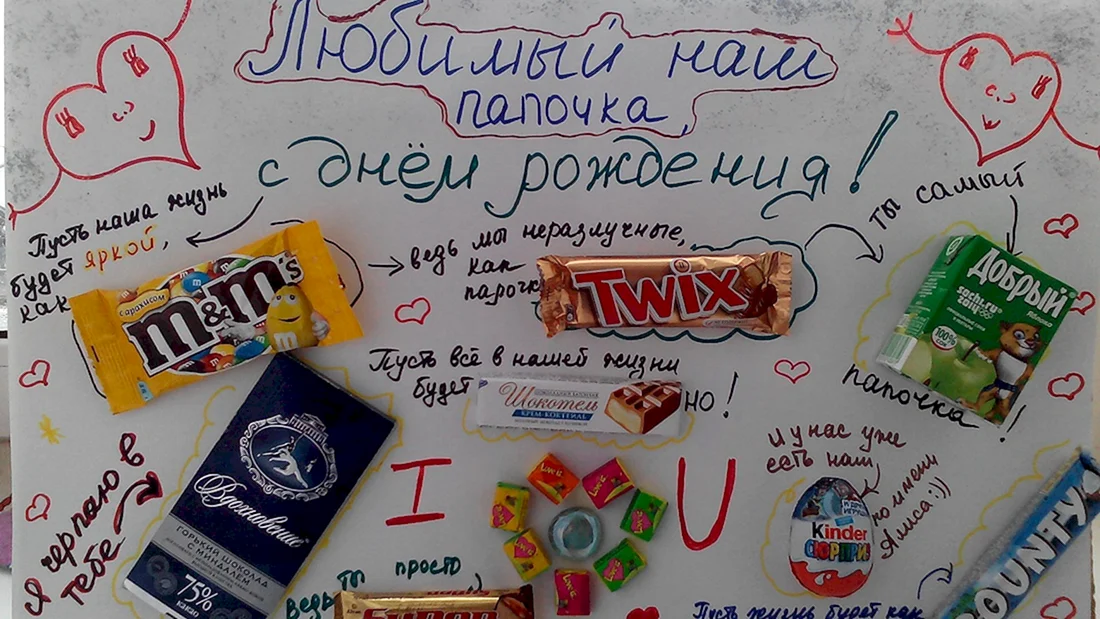 Любимый наш
папочка,
с днём рождения!
Пусть наша жизнь
будет яркой,
как
с арахисом
m&m's
ведь мы неразлучные,
как
парочка
TWIX
ты самый
Добрый
sochi.ru
2014
яблоко
100%
папочка!
Пусть всё в нашей жизни
будет
Шокотель
КРЕМ-КОКТЕЙЛЬ
но!
Я черпаю в
тебе
Вдохновение
ГОРЬКИЙ ШОКОЛАД
С МИНДАЛЕМ
75%
какао
I
Love is
U
И у нас уже
есть наш
Kinder
СЮРПРИЗ
по имени
Алиса:))
ты просто
ведь
Пусть жизнь будет как
BOUNTY